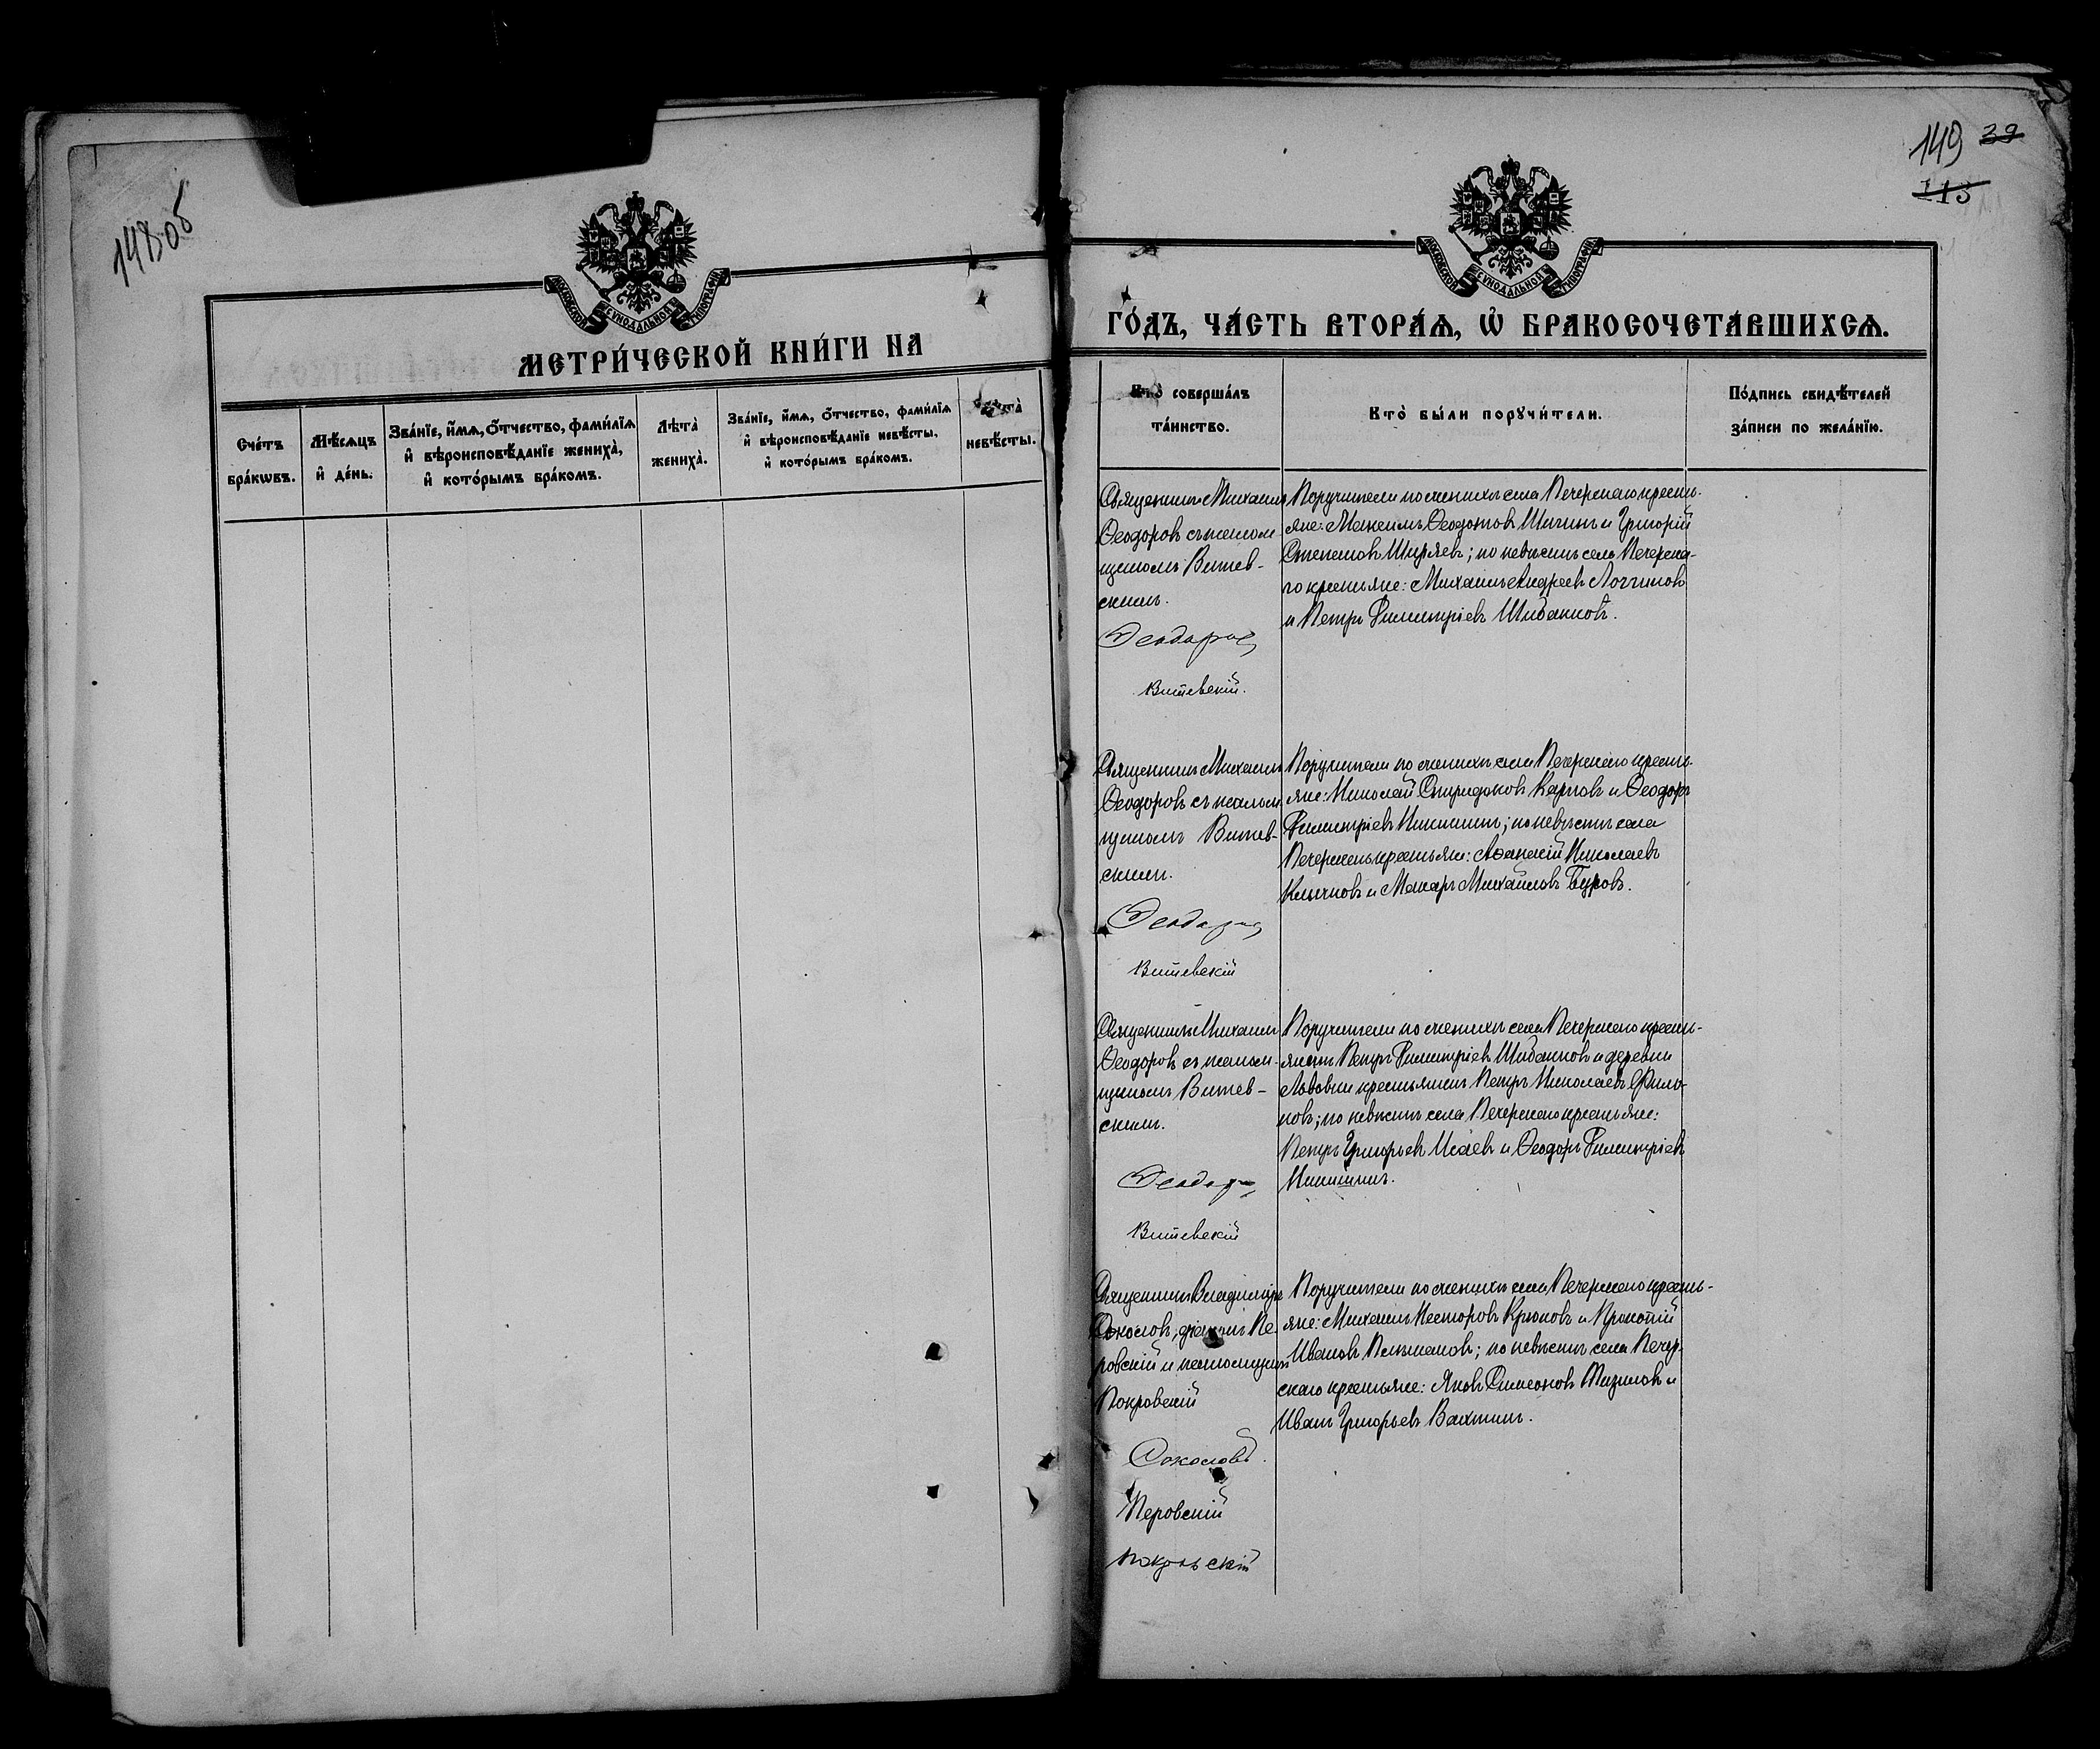 148 об
149 39
113
МОСКОВСКОЙ СѴНОДАЛЬНОЙ ТИПОГРАФІИ
МЕТРИ́ЧЕСКОЙ КНИ́ГИ НА
Сче́тъ бра́кѡвъ.
Мѣ́сяцъ и҆ де́нь.
Зва́нїе, и҆́мѧ, ѻ҆́тчество, фами́лїѧ
и҆ вѣроисповѣ́данїе жениха̀,
и҆ кото́рымъ бра́комъ.
Лѣта̀ жениха̀.
Зва́нїе, и҆́мѧ, ѻ҆́тчество, фами́лїѧ
и҆ вѣроисповѣ́данїе невѣ́сты,
и҆ кото́рымъ бра́комъ.
Лѣта̀ невѣ́сты.
МОСКОВСКОЙ СѴНОДАЛЬНОЙ ТИПОГРАФІИ
ГО́ДЪ, ЧА́СТЬ ВТОРА́Ѧ, Ѡ҆ БРАКОСОЧЕТА́ВШИХСѦ.
Кто̀ соверша́лъ
та́инство.
Кто̀ бы́ли порꙋчи́тели.
По́дпись свидѣ́телей
за́писи по жела́нїю.
Священникъ Михаилъ
Ѳеодоровъ съ псалом-
щикомъ Витев-
скимъ.
Ѳеодоровъ
Витевскій.
Поручители по женихѣ села Печерскаго кресть-
яне: Максимъ Ѳеодотовъ Шигинъ и Григорій
Степановъ Ширяевъ; по невѣстѣ села Печерска-
го крестьяне: Михаилъ Андреевъ Логгиновъ
и Петръ Димитріевъ Шибанковъ.
Священникъ Михаилъ
Ѳеодоровъ съ псалом-
щикомъ Витев-
скимъ.
Ѳеодоровъ
Витевскій
Поручители по женихѣ села Печерскаго кресть-
яне: Николай Спиридоновъ Карповъ и Ѳеодоръ
Димитріевъ Никишинъ; по невѣстѣ села
Печерскаго крестьяне: Аѳанасій Николаевъ
Клычковъ и Макаръ Михайловъ Буровъ.
Священникъ Михаилъ
Ѳеодоровъ съ псалом-
щикомъ Витев-
скимъ.
Ѳеодоровъ
Витевскій
Поручители по женихѣ села Печерскаго кресть-
янинъ Петръ Димитріевъ Шибанковъ и деревни
Львовки крестьянинъ Петръ Николаевъ Фили-
повъ; по невѣстѣ села Печерскаго крестьяне:
Петръ Григорьевъ Исаевъ и Ѳеодоръ Димитріевъ
Никишинъ.
Священникъ Владиміръ
Соколовъ, діаконъ Пе-
ровскій и псаломщикъ
Покровскій
Соколовъ.
Перовскій
Покровскій
Поручители по женихѣ села Печерскаго кресть-
яне: Михаилъ Несторовъ Крюковъ и Прокопій
Ивановъ Пельмановъ; по невѣстѣ села Печер-
скаго крестьяне: Яковъ Симеоновъ Мизиновъ и
Иванъ Григорьевъ Вахтинъ.